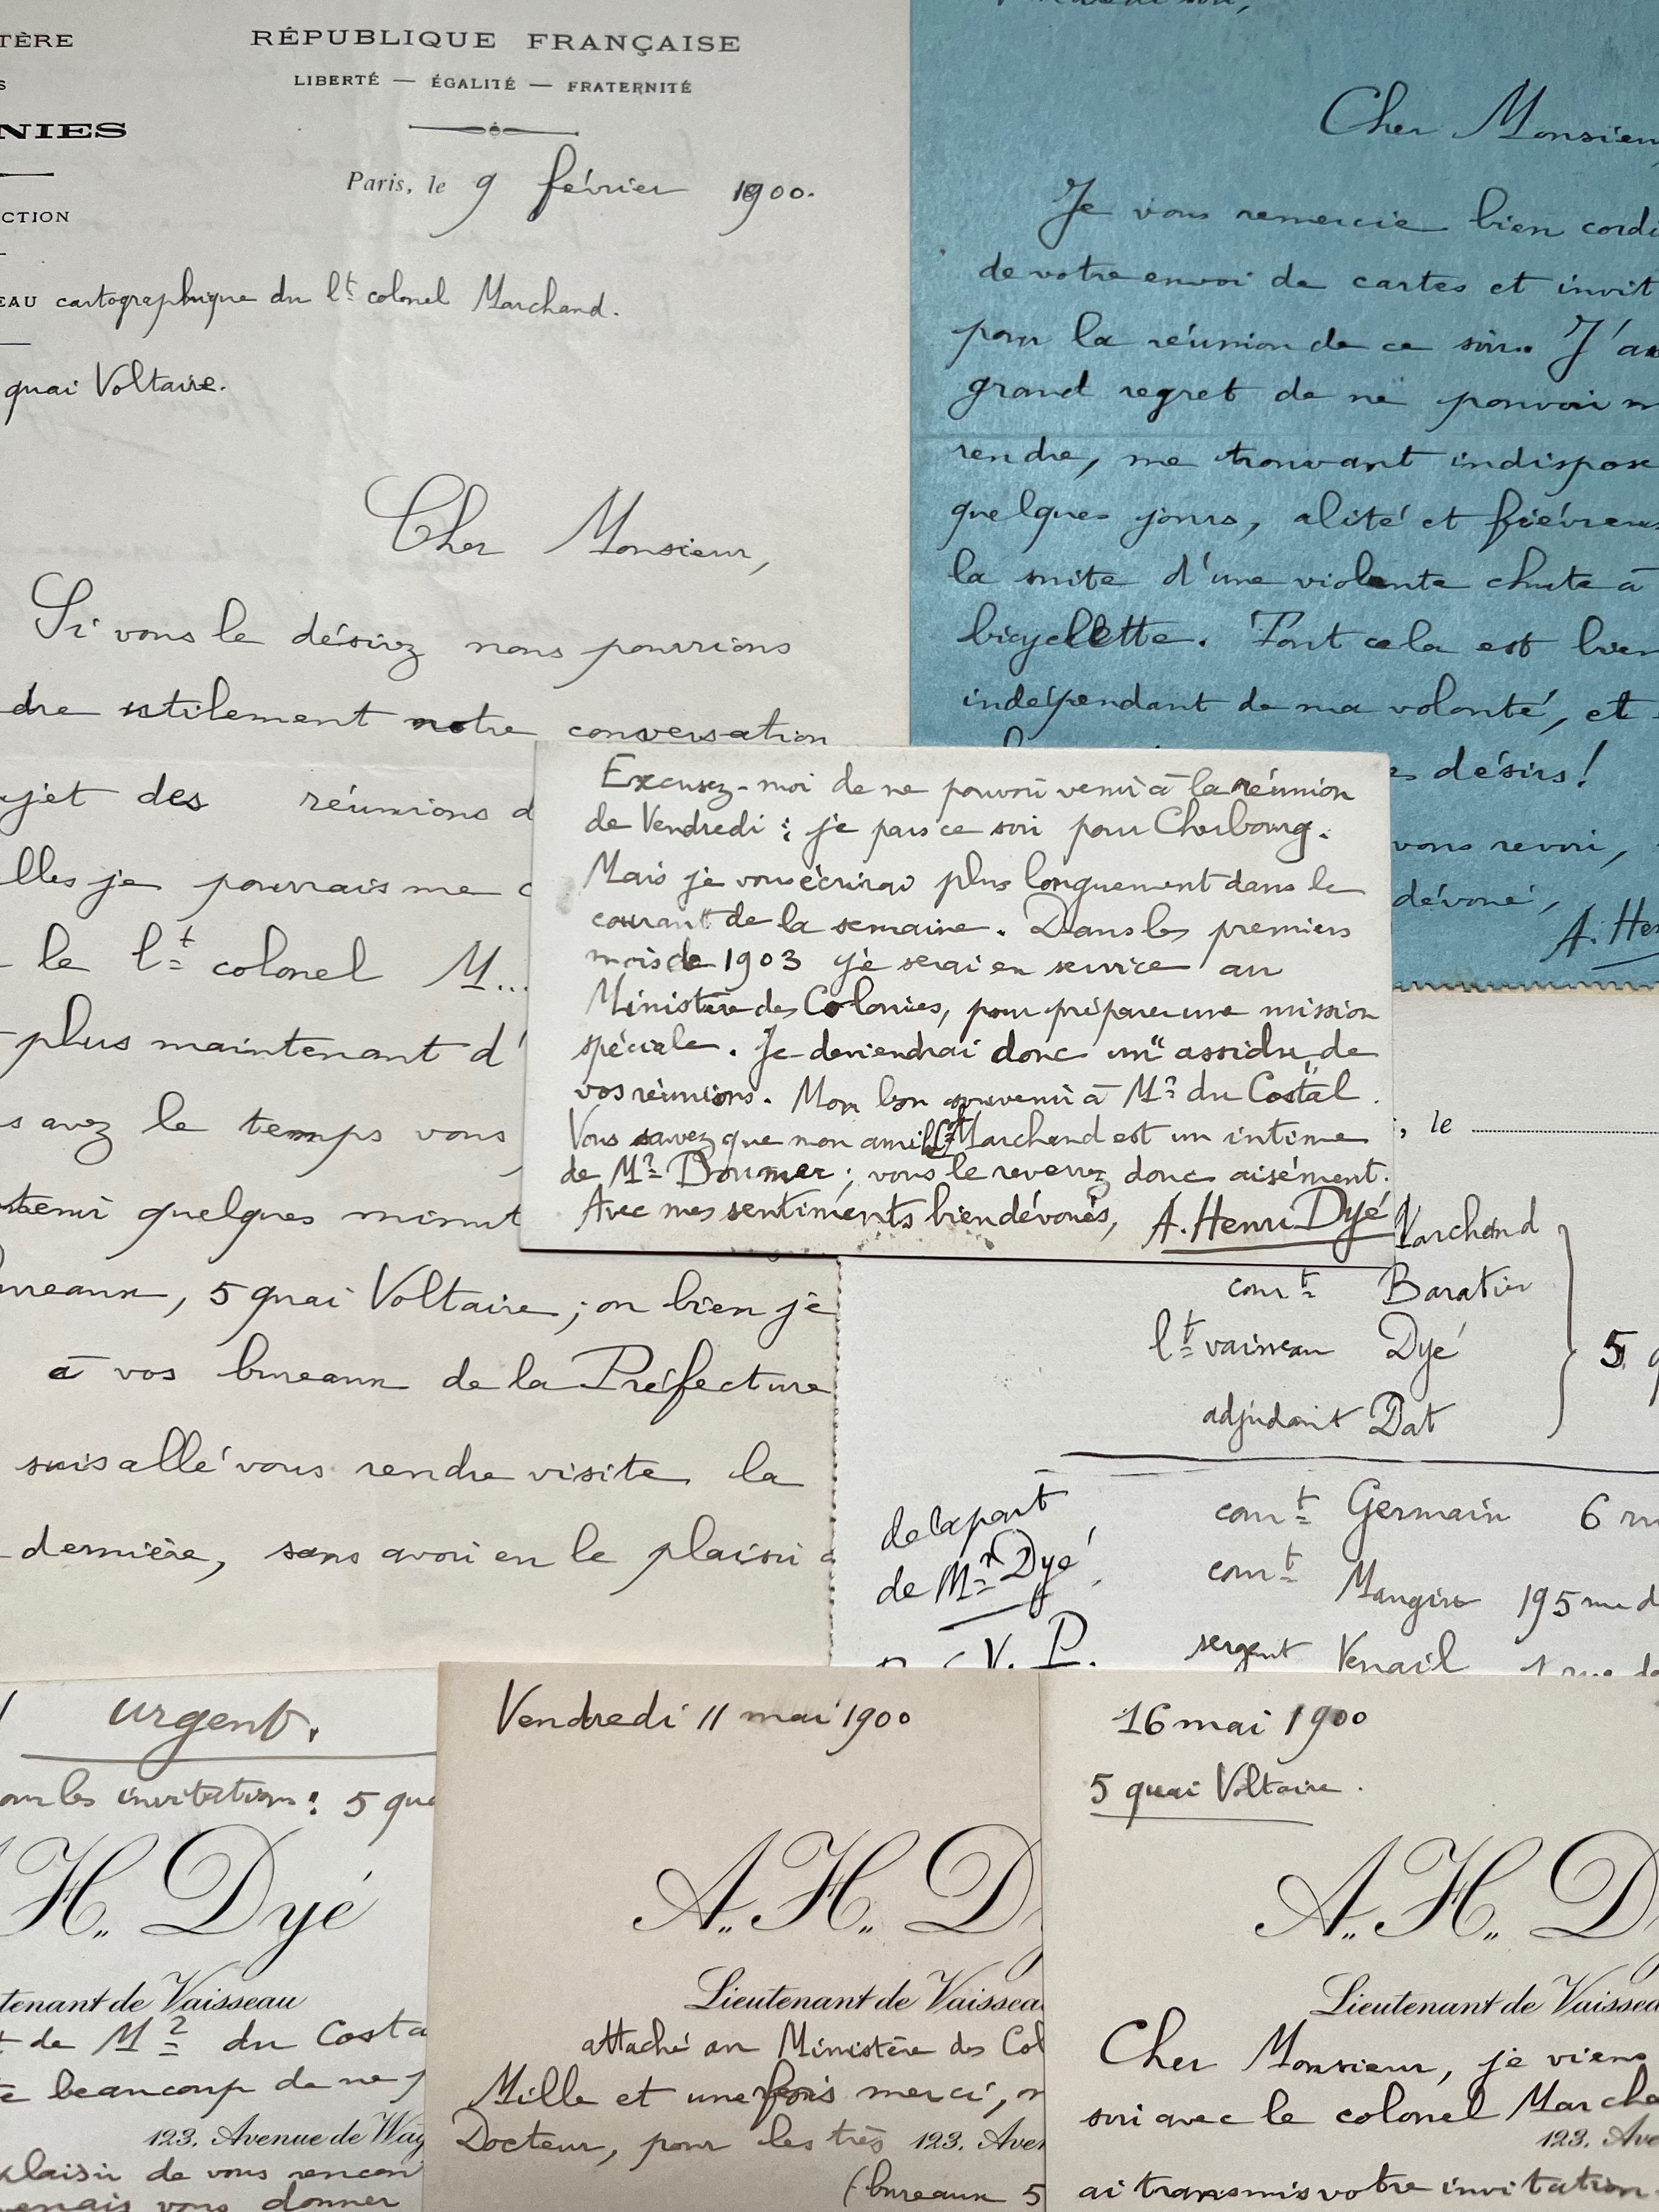 TÈRE
RÉPUBLIQUE FRANÇAISE
S
LIBERTÉ — ÉGALITÉ — FRATERNITÉ
NIES
Paris, le 9 février 1900.
CTION
EAU cartographique du lt colonel Marchand.
quai Voltaire.
Cher Monsieur,
Si vous le désirez nous pourrions
dre utilement notre conversation
ujet des réunions d
lles je pourrais me
le lt colonel M...
plus maintenant d'
s avez le temps vous
tenir quelques minut
bureaux, 5 quai Voltaire ; ou bien je
à vos bureaux de la Préfecture
suis allé vous rendre visite la
dernière, sans avoir eu le plaisir
Cher Monsieur
Je vous remercie bien cordi
de votre envoi de cartes et invit
pour la réunion de ce soir. J'au
grand regret de ne pouvoir m
rendre, me trouvant indispose
quelques jours, alité et fiévreux
la suite d'une violente chute à
bicyclette. Tout cela est bien
indépendant de ma volonté, et
désirs !
vous revoir,
dévoué,
A. Hen
Excusez-moi de ne pouvoir venir à la réunion
de Vendredi : je pars ce soir pour Cherbourg.
Mais je vous écrirai plus longuement dans le
courant de la semaine. Dans les premiers
mois de 1903 je serai en service au
Ministère des Colonies, pour préparer une mission
spéciale. Je deviendrai donc un "assidu" de
vos réunions. Mon bon souvenir à Mr du Costal.
Vous savez que mon ami Marchand est un intime
de Mr Doumer ; vous le reverrez donc aisément.
Avec mes sentiments bien dévoués, A. Henri Dyé
, le
Marchand
comt Baratier
lt vaisseau Dyé
adjudant Dat
5 q
de la part
de Mr Dyé
V. P.
comt Germain 6 ru
comt Mangin 195 rue d
sergent Venail 1 rue de
urgent.
our les invitations : 5 qua
H. Dyé
tenant de Vaisseau
de Mr du Costa
beaucoup de ne p
123, Avenue de Wag
plaisir de vous rencon
venais vous donner
Vendredi 11 mai 1900
A. H. D
Lieutenant de Vaissea
attaché au Ministère des Col
Mille et une fois merci, m
Docteur, pour les très 123, Aven
(bureaux 5
16 mai 1900
5 quai Voltaire.
A. H. D
Lieutenant de Vaissea
Cher Monsieur, je viens
soir avec le colonel Marcha
123, Ave
ai transmis votre invitation